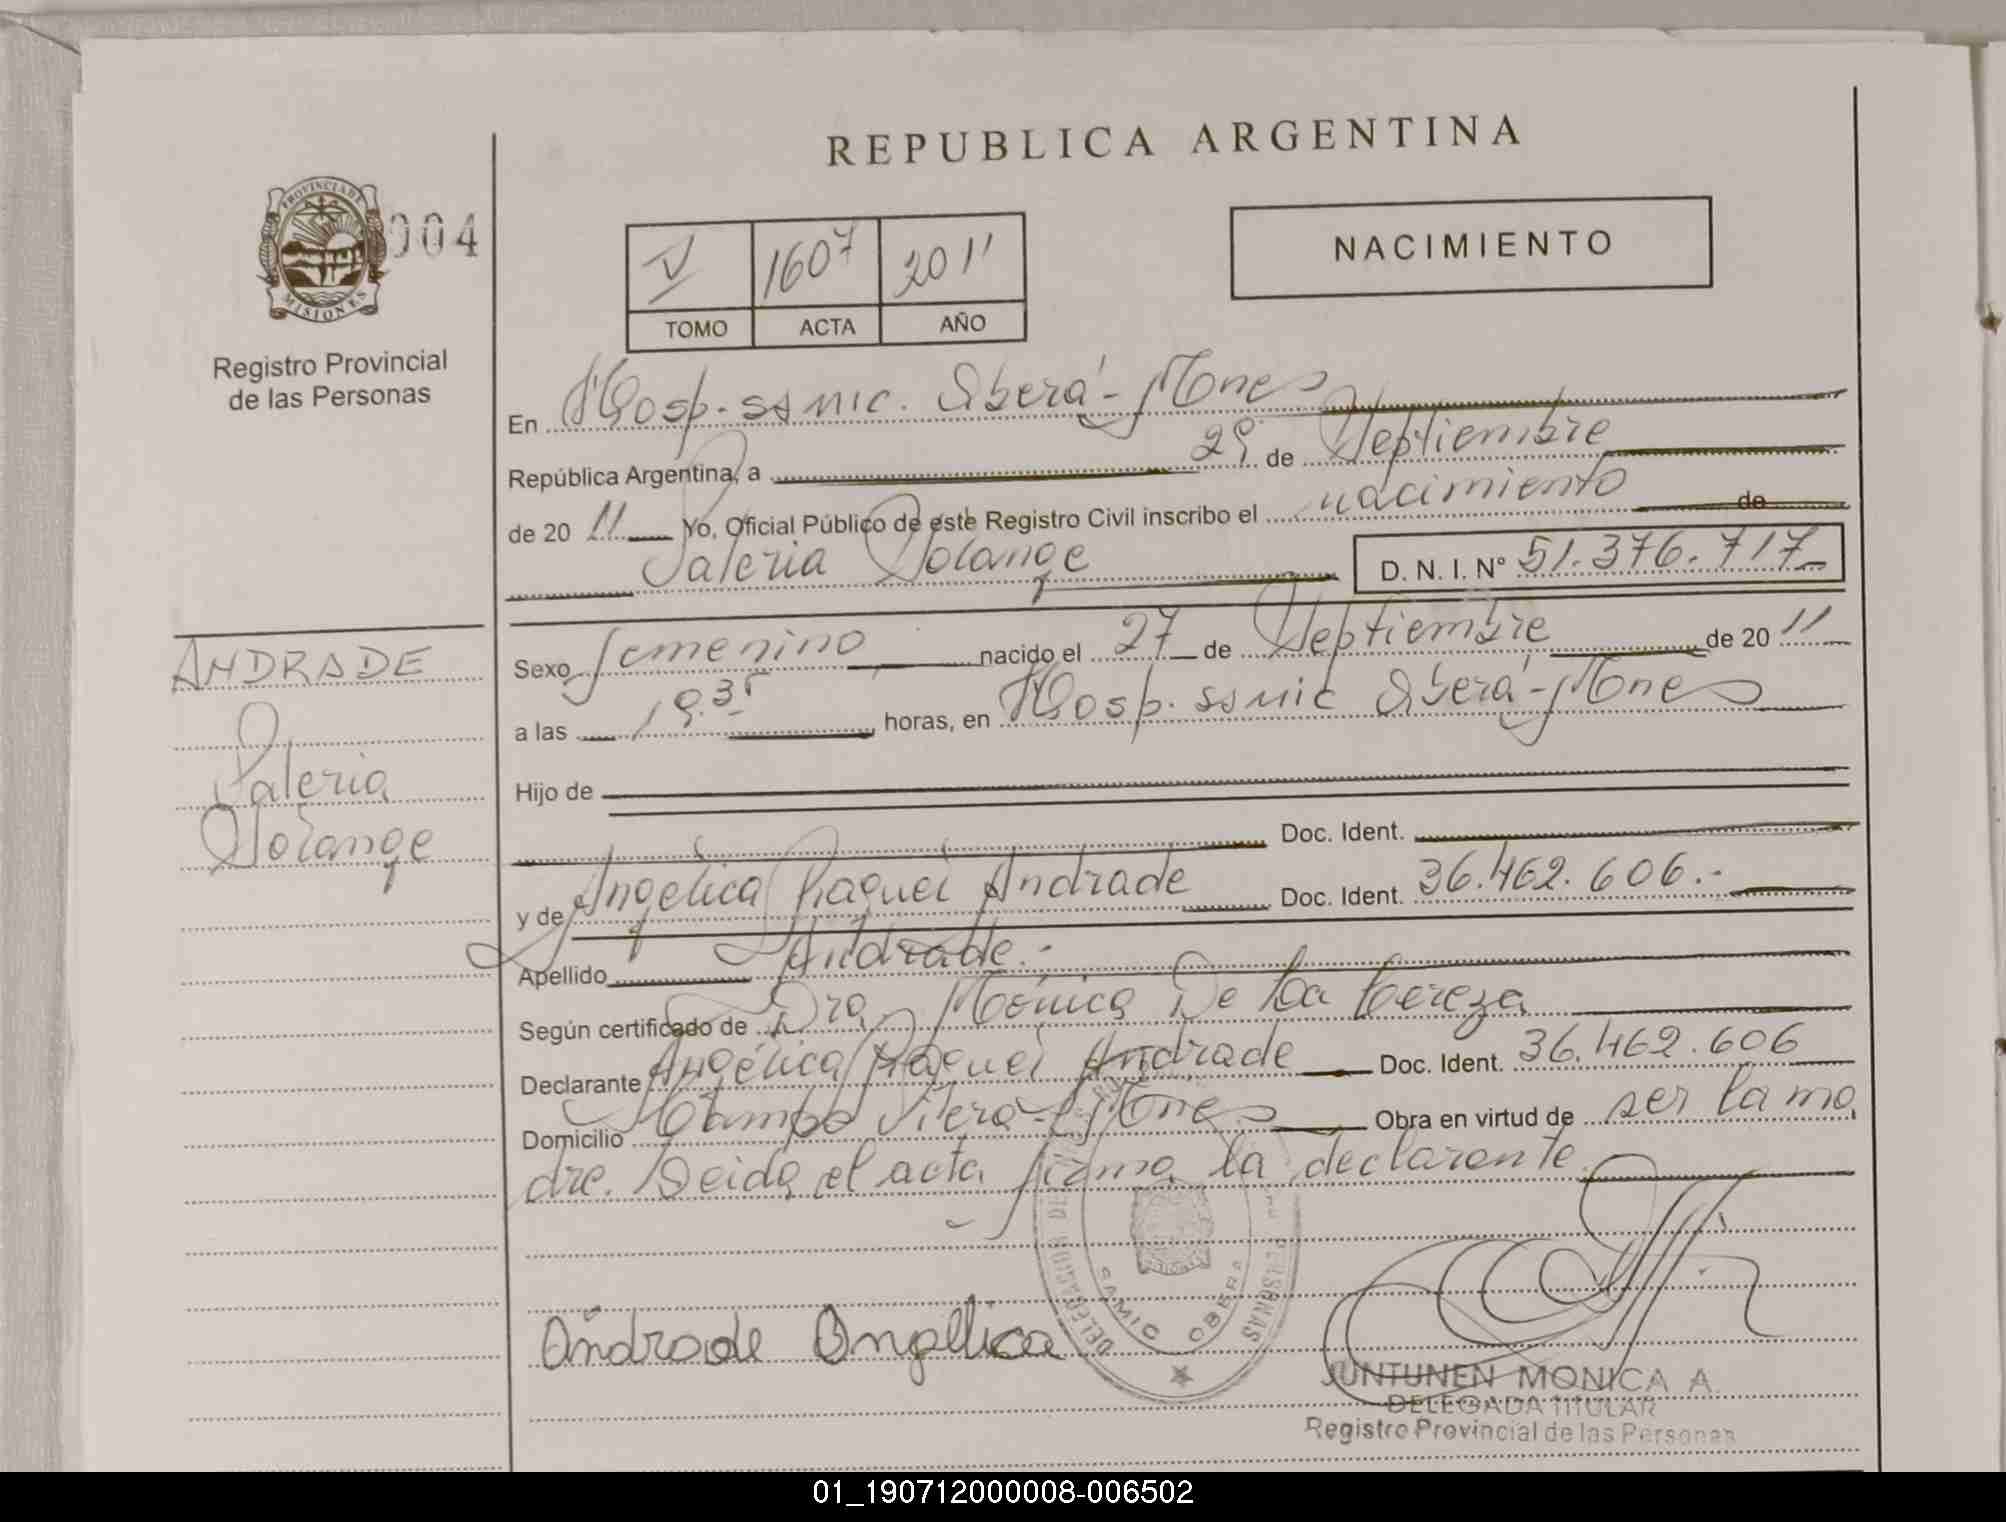 REPUBLICA ARGENTINA
PROVINCIA DE
MISIONES
004
Registro Provincial
de las Personas
V 1607 2011
TOMO ACTA AÑO
NACIMIENTO
En Hosp. SAMIC. Oberá - Mones
República Argentina, a 29 de Septiembre
de 20 11 Yo, Oficial Público de este Registro Civil inscribo el nacimiento de
Valeria Solange D. N. I. Nº 51.376.717
Sexo femenino nacido el 27 de Septiembre de 20 11
a las 19.35 horas, en Hosp. SAMIC Oberá - Mones
Hijo de
Doc. Ident.
y de Angélica Raquel Andrade Doc. Ident. 36.462.606.-
Apellido Andrade.-
Según certificado de Dra. Mónica De La Cereza
Declarante Angélica Raquel Andrade Doc. Ident. 36.462.606
Domicilio Campo Viera - Mones Obra en virtud de ser la ma
dre. Leida el acta firma la declarante.
ANDRADE
Valeria
Solange
Andrade Angelica
SAMIC OBERA
JUNTUNEN MONICA A.
DELEGADA TITULAR
Registro Provincial de las Personas
01_190712000008-006502